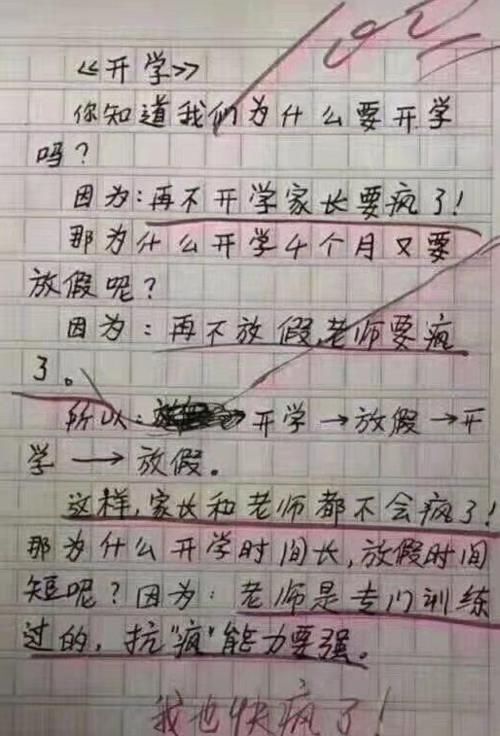 100
《开学》
你知道我们为什么要开学
吗？
因为：再不开学家长要疯了！
那为什么开学4个月又要
放假呢？
因为：再不放假,老师要疯
了。
所以：开学→放假→开
学→放假。
这样,家长和老师都不会疯了！
那为什么开学时间长,放假时间
短呢？因为：老师是专门训练
过的,抗"疯"能力要强。
我也快疯了！